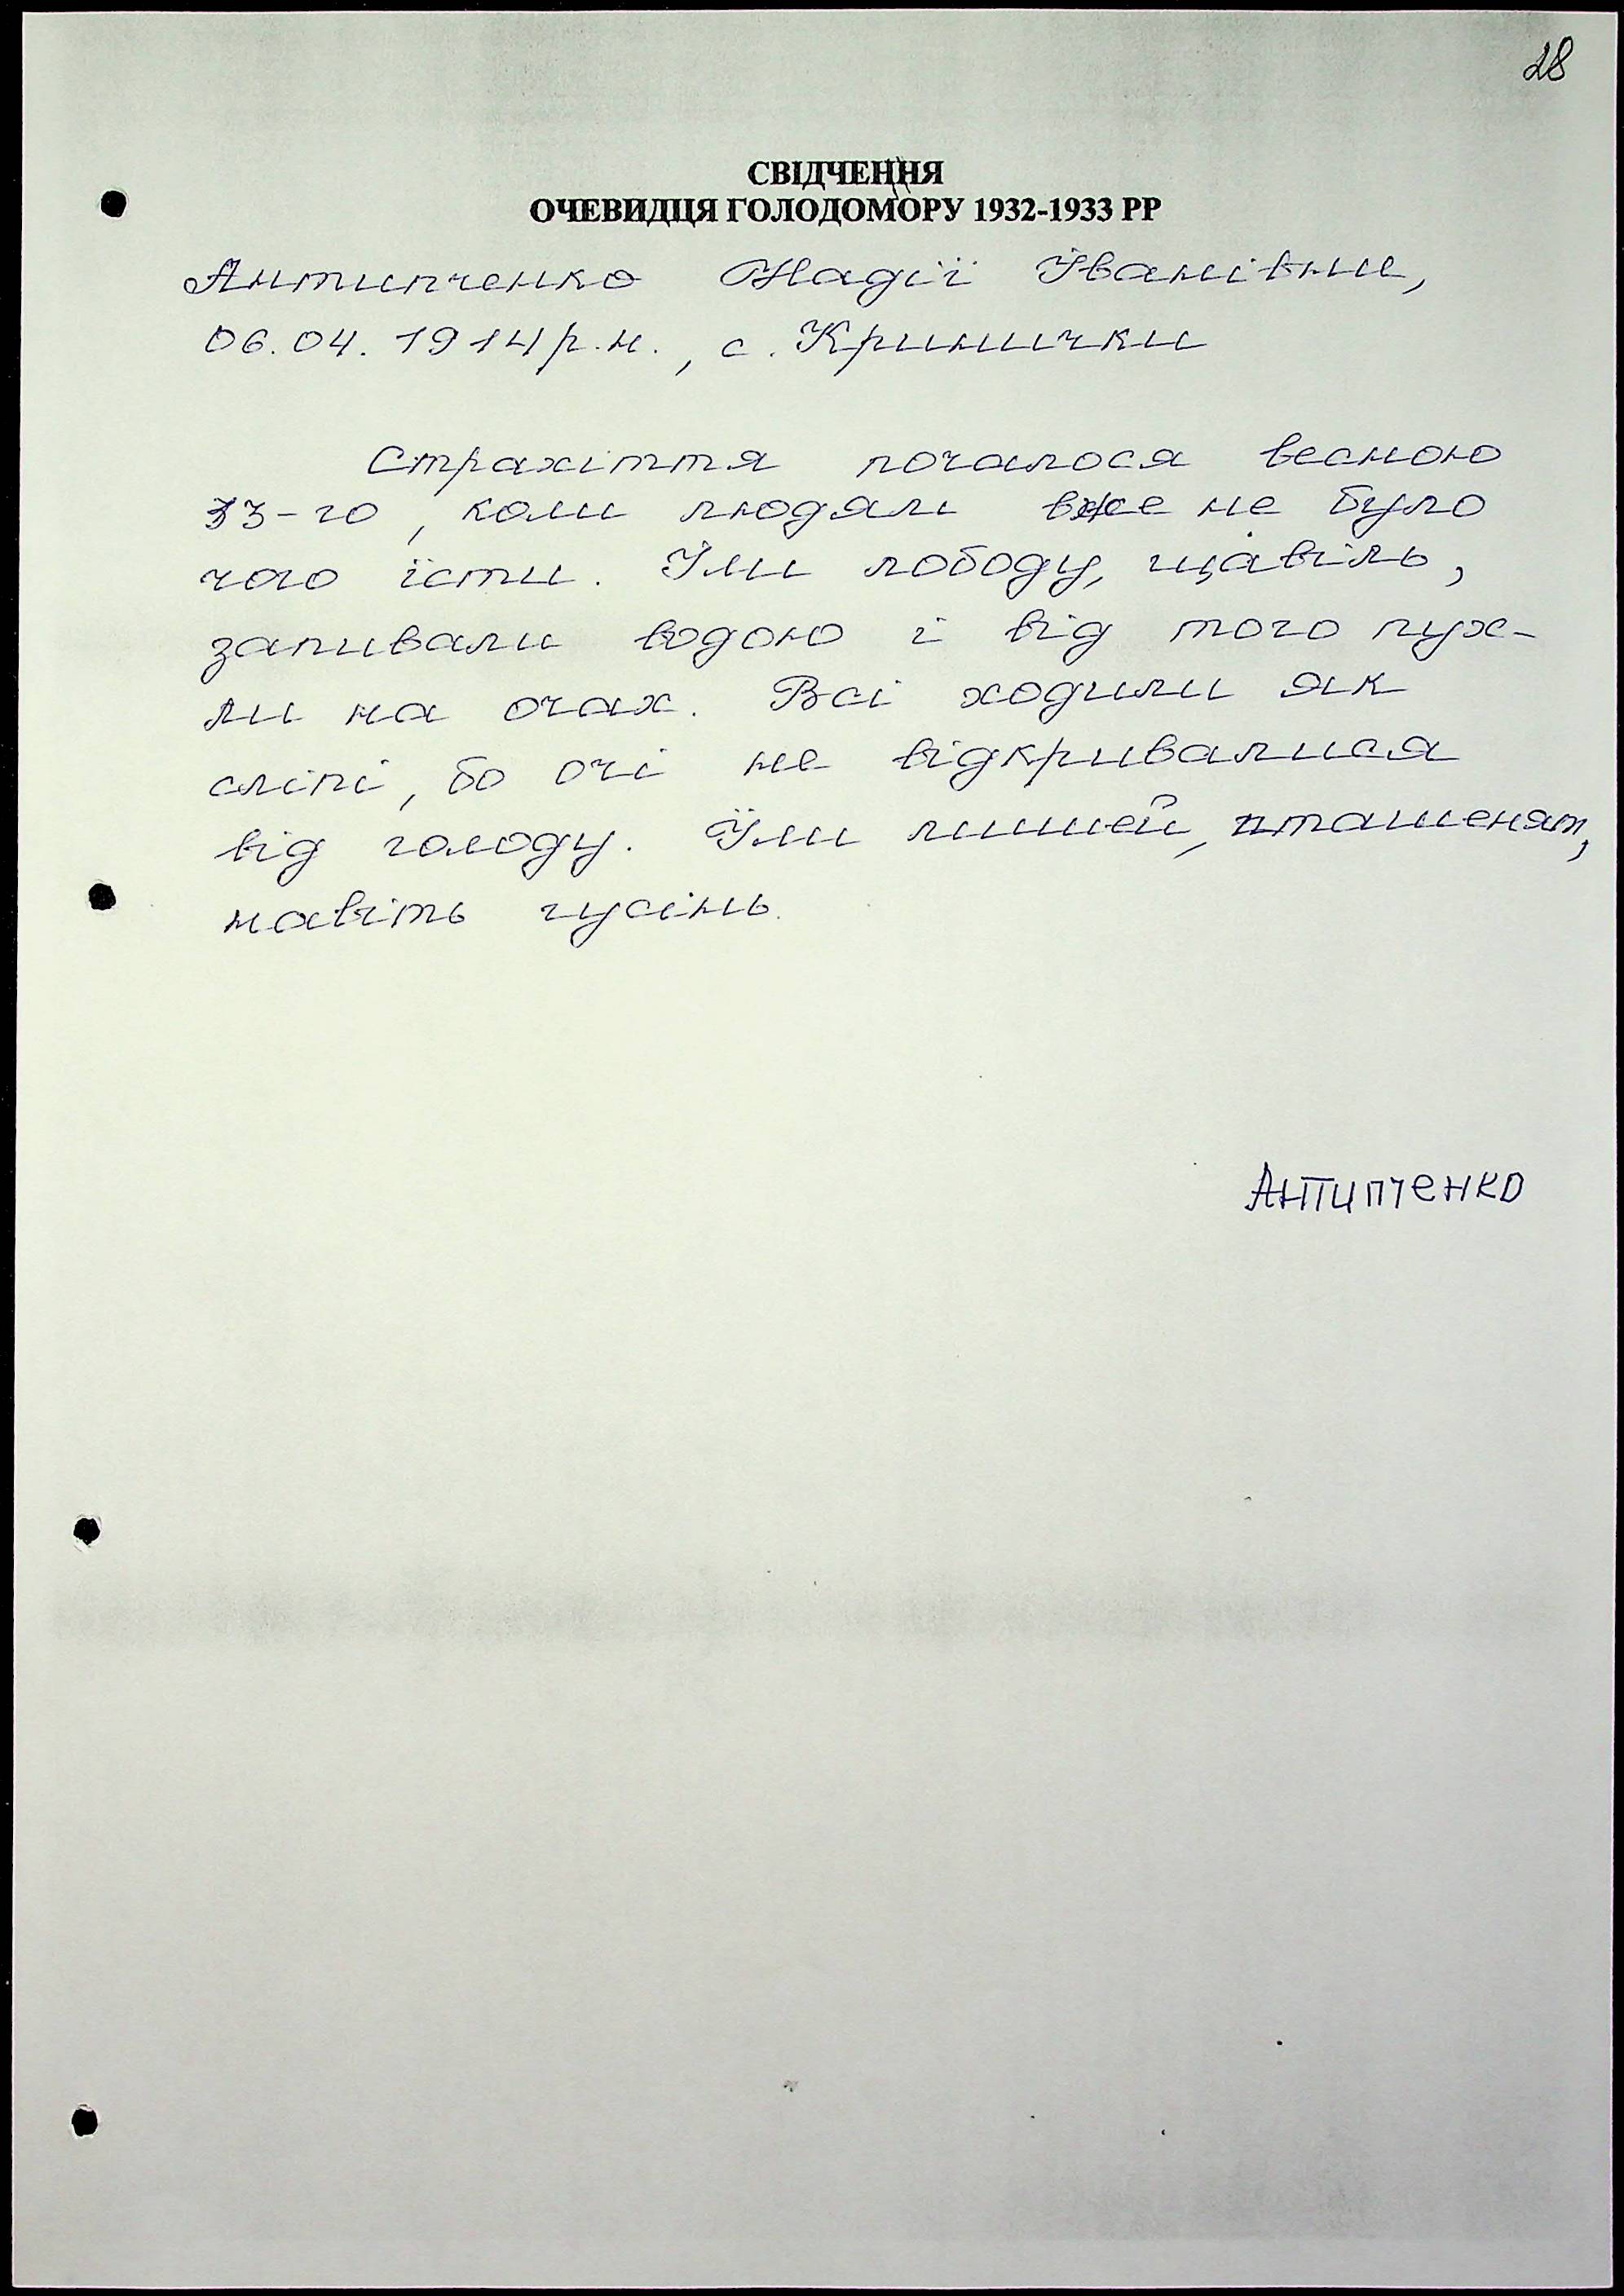 28
СВІДЧЕННЯ
ОЧЕВИДЦЯ ГОЛОДОМОРУ 1932-1933 РР
Антипченко Надії Іванівни,
06.04.1914 р.н., с. Кринички
Страхіття почалося весною
33-го, коли людям вже не було
чого їсти. Їли лободу, щавіль,
запивали водою і від того пух-
ли на очах. Всі ходили як
сліпі, бо очі не відкривалися
від голоду. Їли мишей, пташенят,
навіть гусінь.
Антипченко